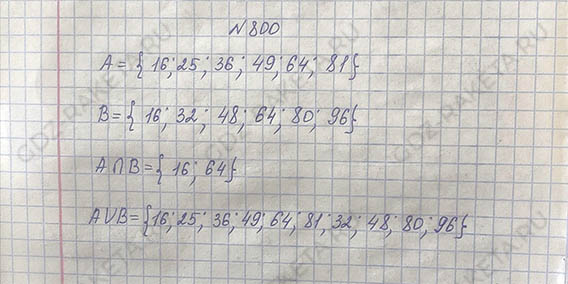 №800
A = { 16; 25; 36; 49; 64; 81}
B = { 16; 32; 48; 64; 80; 96}
A∩B = { 16; 64}
A∪B = {16; 25; 36; 49; 64; 81; 32; 48; 80; 96}
GDZ-RAKETA.RU